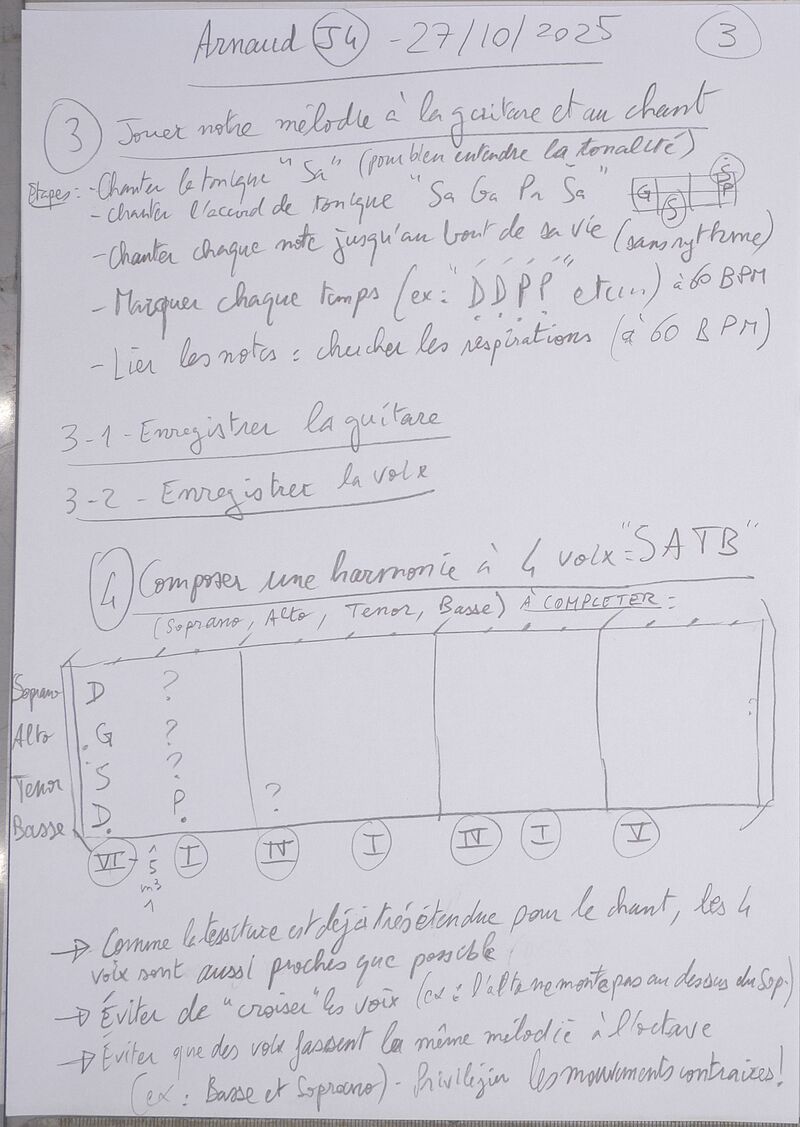 Arnaud J4 - 27/10/2025 3
3 Jouer notre mélodie à la guitare et au chant
Etapes : - Chanter la tonique "Sa" (pour bien entendre la tonalité)
- chanter l'accord de tonique "Sa Ga Pa Ṡa" G S Ṡ P
- Chanter chaque note jusqu'au bout de sa vie (sans rythme)
- Marquer chaque temps (ex : "Ḍ Ḍ P̣ P̣" etc...) à 60 BPM
- Lier les notes = chercher les respirations (à 60 BPM)
3-1 - Enregistrer la guitare
3-2 - Enregistrer la voix
4 Composer une harmonie à 4 voix = "SATB"
(Soprano, Alto, Tenor, Basse) À COMPLÉTER =
Soprano D ?
Alto .G ?
Tenor S ?
Basse D. P. ?
VI- I IV I IV I V
5
m3
1
→ Comme la tessiture est déjà très étendue pour le chant, les 4
voix sont aussi proches que possible
→ Éviter de "croiser" les voix (ex : l'alto ne monte pas au dessus du Sop.)
→ Éviter que des voix fassent la même mélodie à l'octave
(ex : Basse et Soprano) - Privilégier les mouvements contraires !